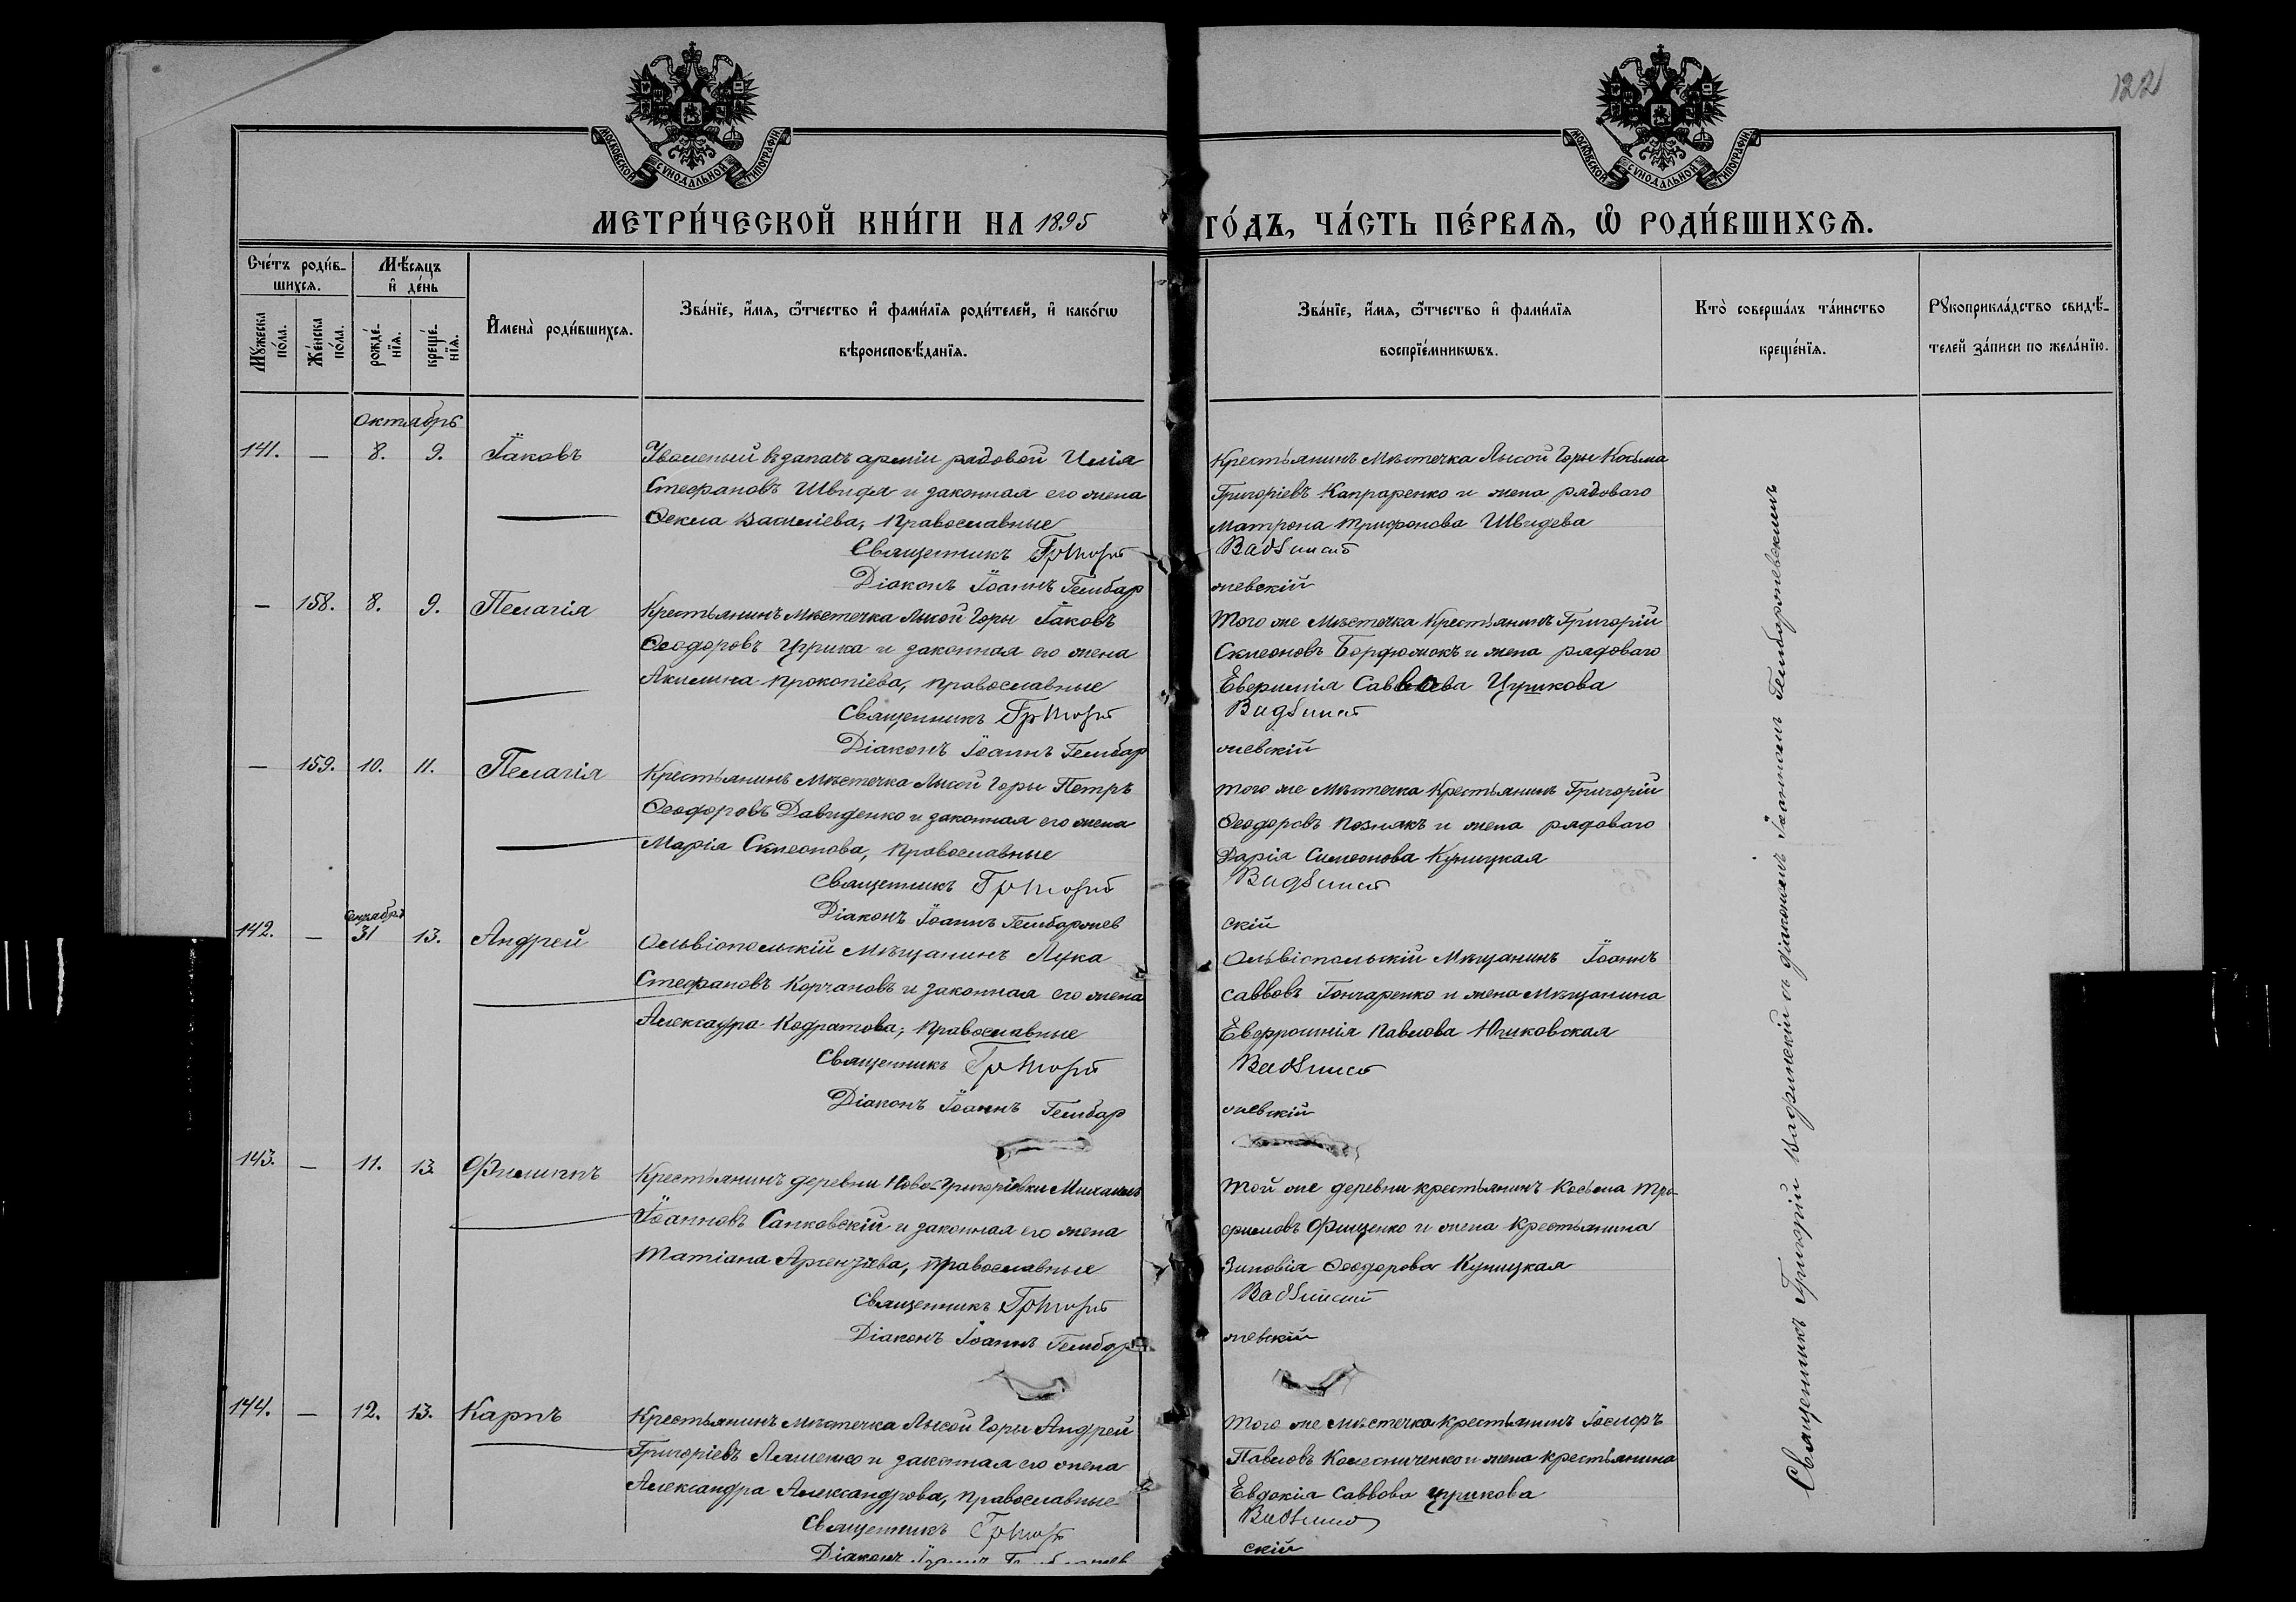 122
МОСКОВСКОЙ СѴНОДАЛЬНОЙ ТИПОГРАФІИ
МОСКОВСКОЙ СѴНОДАЛЬНОЙ ТИПОГРАФІИ
МЕТРИ́ЧЕСКОЙ КНИ́ГИ НА 1895 ГО́ДЪ, ЧА́СТЬ ПЕ́РВАѦ, Ѡ҆ РОДИ́ВШИХСѦ.
Сче́тъ роди́в-
шихсѧ.
Мꙋ́жеска по́ла.
Же́нска по́ла.
Мѣ́сѧцъ
и҆ де́нь
рожде́-
нїѧ.
креще́-
нїѧ.
И҆мена̀ роди́вшихсѧ.
Зва́нїе, и҆́мѧ, ѻ҆́тчество и҆ фами́лїѧ роди́телей, и҆ како́гѡ
вѣроисповѣ́данїѧ.
Зва́нїе, и҆́мѧ, ѻ҆́тчество и҆ фами́лїѧ
воспрїе́мникѡвъ.
Кто̀ соверша́лъ та́инство
креще́нїѧ.
Рꙋкоприкла́дство свидѣ́-
телей за́писи по жела́нїю.
Октябрь
141. — 8. 9. Іаковъ
Уволеный въ запасъ арміи рядовой Илія
Стефановъ Швидя и законная его жена
Ѳекла Василіева, православные
Священникъ
Діаконъ Іоаннъ Гембар
Крестьянинъ Мѣстечка Лысой Горы Косьма
Григоріевъ Капраренко и жена рядоваго
Матрона Трифонова Швидева
жевскій
— 158. 8. 9. Пелагія
Крестьянинъ Мѣстечка Лысой Горы Іаковъ
Ѳеодоровъ Цурика и законная его жена
Акилина Прокопіева, православные
Священникъ
Діаконъ Іоаннъ Гембар
Того же Мѣстечка Крестьянинъ Григорій
и жена рядоваго
Евфимія Саввова Цурикова
жевскій
— 159. 10. 11. Пелагія
Крестьянинъ Мѣстечка Лысой Горы Петръ
Ѳеодоровъ Давиденко и законная его жена
Марія Симеонова, православные
Священникъ
Діаконъ Іоаннъ Гембаржев
того же Мѣстечка Крестьянинъ Григорій
Ѳеодоровъ Познякъ и жена рядоваго
Дарія Симеонова Куницкая
скій
142. — 31 13. Андрей
Ольвіопольскій Мѣщанинъ Лука
Стефановъ Корчановъ и законная его жена
Александра Кодратова, православные
Священникъ
Діаконъ Іоаннъ Гембар
Ольвіопольскій Мѣщанинъ Іоаннъ
Саввовъ Гончаренко и жена Мѣщанина
Евфросинія Павлова
жевскій
143. — 11. 13. Филиппъ
Крестьянинъ деревни Ново-Григорьевки Михаилъ
Іоанновъ Санковскій и законная его жена
Татіана православные
Священникъ
Діаконъ Іоаннъ Гембар
Той же деревни крестьянинъ Косьма Тро-
фимовъ Фищенко и жена Крестьянина
Зиновія Ѳеодорова Куницкая
жевскій
144. — 12. 13. Карпъ
Крестьянинъ мѣстечка Лысой Горы Андрей
Григоріевъ Ляшенко и законная его жена
Александра Александрова, православные
Священникъ
Діаконъ Іоаннъ
Того же мѣстечка Крестьянинъ Іосифъ
Павловъ Колесниченко и жена крестьянина
Евдокія Саввова Цурикова
скій
Священникъ Григорій съ діакономъ Іоанномъ Гембаржевскимъ